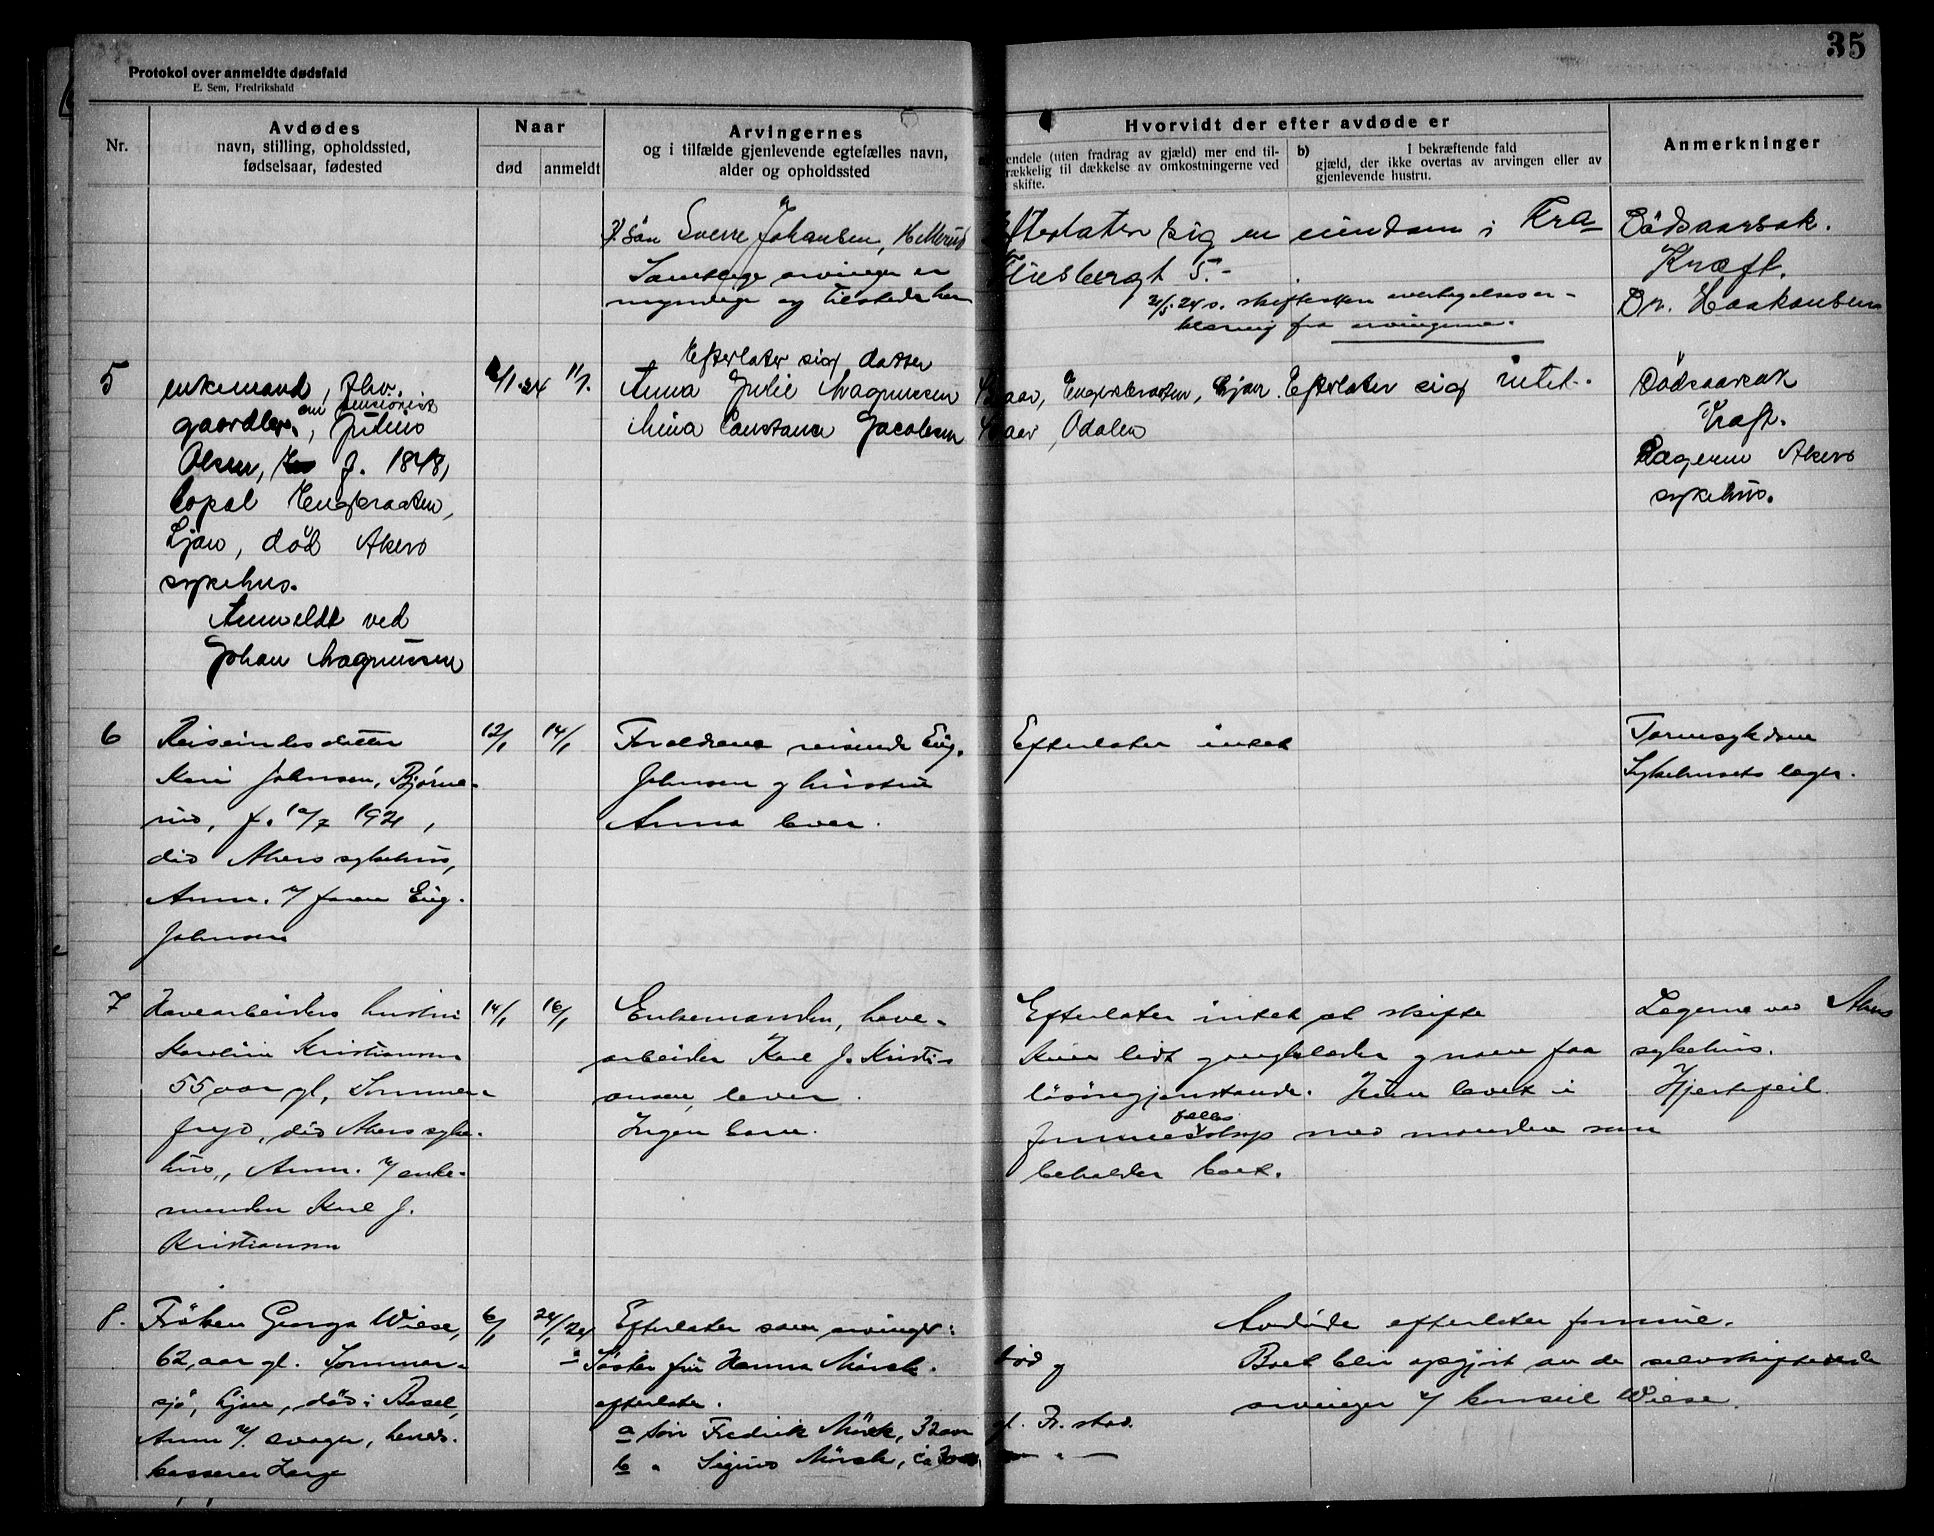 35
Protokol over anmeldte dødsfald
E. Sem, Fredrikshald
Nr.
Avdødes
navn, stilling, opholdssted,
fødselsaar, fødested
Naar
død
anmeldt
Arvingernes
og i tilfælde gjenlevende egtefælles navn,
alder og opholdssted
Hvorvidt der efter avdøde er
endele (uten fradrag av gjæld) mer end til-
rækkelig til dækkelse av omkostningerne ved
skifte.
b) I bekræftende fald
gjæld, der ikke overtas av arvingen eller av
gjenlevende hustru.
Anmerkninger
Søn Sverre Johansen, Hellerud
Samtlige arvinger er
myndige og tilstede her
Efterlater sig en eiendom i Kra
5.-
24 s. skifteretten overtagelseser-
klæring fra arvingerne.
Dödsaarsak.
Kræft.
Dr. Haakonsen
5
enkemand, fhv.
gaardbr., nu pensionist Julius
Olsen, f. 1848,
bopæl Engbraaten,
Ljan, död Akers
sykehus.
Anmeldt ved
Johan Magnussen
/1-24
11/1.
Efterlater sig datter
Anna Julie Magnussen
aar, Engersbraaten, Ljan.
Mina Constance Jacobsen
aar, Odalen
Efterlater sig intet.
Dödsaarsak
Kraft.
Lægerne Akers
sykehus.
6
Reisendes datter
Kari Johnsen, Bjørne-
f. 10/7 1921,
död Akers sykehus,
Anm. v/ faren Eug.
Johnsen
12/1
14/1
Forældrene reisende Eug.
Johnsen og hustru
Anna lever.
Efterlater intet
Tarmsykdom
Sykehusets læger.
7
Havearbeiders hustru
Karoline Kristiansen
55 aar gl, Sommer-
fryd, död Akers syke-
hus, Anm. v/ enke-
manden Karl J.
Kristiansen
14/1
16/1
Enkemanden, have-
arbeider Karl J. Kristi-
ansen, lever.
Ingen barn.
Efterlater intet at skifte
Kun lidt gangklæder og noen faa
løsøregjenstande. Hun levet i
formuesfællesskap med manden som
beholder boet.
Lægerne ved Akers
sykehus.
Hjertefeil.
8.
Frøken Georga Wiese,
62 aar gl. Sommer-
sjö, Ljan, död i Basel,
Anm v/. svoger,
kasserer Lange
6/1
24/1 24
Efterlater som arvinger:
Søster fru Hanna Mörch.
död og
efterlater.
a sön Fredrik Mörch, 32 aar
gl. Fr.stad.
b " Sigurd Mörch,
— " —
Avdöde efterlater formue.
Boet blir opgjort av de selvskiftende
arvinger v/ konsul Wiese.